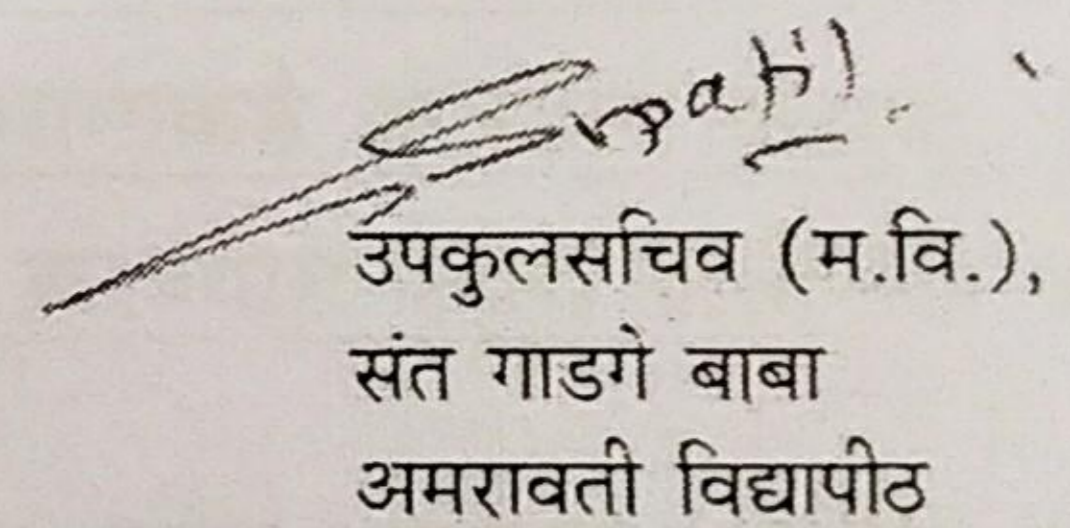 उपकुलसचिव (म.वि.),
संत गाडगे बाबा
अमरावती विद्यापीठ